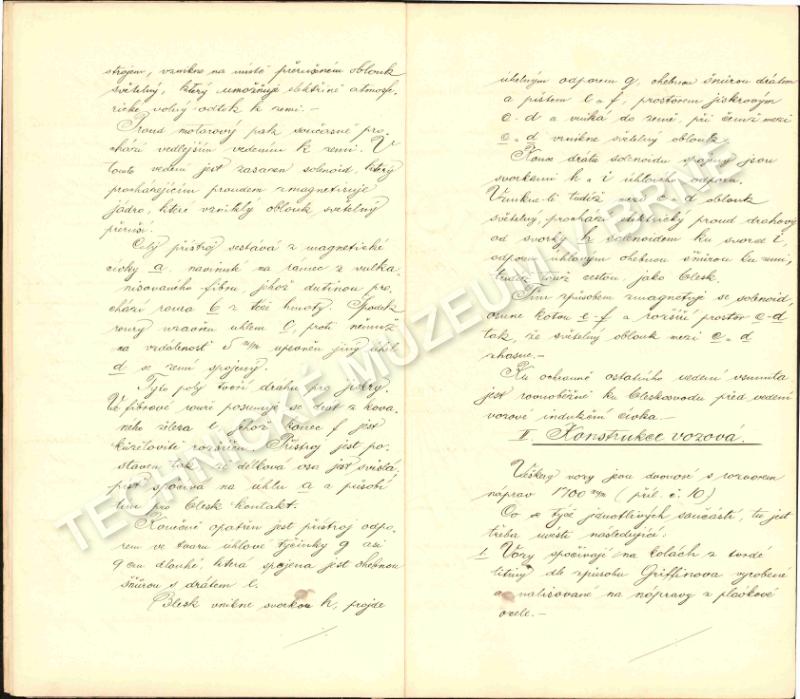 strojem, vznikne na místě přerušeném oblouk
světelný, který umožňuje elektřině atmosfe-
rické volný odtok k zemi.-
Proud motorový pak současně pro-
chází vedlejším vedením k zemi. V
touto vedení jest zasazen solenoid, který
procházejícím proudem zmagnetisuje
jádro, které vzniklý oblouk světelný
přeruší.
Celý přístroj sestává z magnetické
cívky a, navinuté na rámec z vulka-
nisovaného fibru, jehož dutinou pro-
chází roura b z téže hmoty. Spodek
roury uzavřen uhlem c, proti němuž
na vzdálenost 5 m/m upevněn jiný uhel
d se zemí spojený.
Tyto póly tvoří dráhu pro jiskry.
Ve fibrové rouře posunuje se drát z kova-
ného železa e, jehož konec f jest
kuželovitě rozšířen. Přístroj jest po-
staven tak, že délková osa jest svislá,
spočívá na uhlu a působí
pro blesk kontakt.
Rovněž opatřen jest přístroj odpo-
rem ve tvaru uhlové tyčinky g asi
9 cm dlouhé, která spojena jest ohebnou
šňůrou s drátem e.
Blesk vnikne svorkou h, projde
uhelným odporem g, ohebnou šňůrou drátem
a pístem e a f, prostorem jiskrovým
c-d a vniká do země, při čemž mezi
c a d vznikne světelný oblouk.
Konce drátu solenoidu spojeny jsou
svorkami h a i uhlového odporu.
Vznikne-li tudíž mezi c-d oblouk
světelný, prochází elektrický proud drahový
od svorky h solenoidem ku svorce i,
odporem uhlovým ohebnou šňůrou ku zemi,
tudíž touž cestou, jako blesk.
Tím způsobem zmagnetuje se solenoid,
kotvu e-f a rozšíří prostor c-d
tak, že světelný oblouk mezi c a d
zhasne.-
Ku ochraně ostatního vedení vsunuta
jest rovnoběžně ku bleskosvodu před vedení
vozové indukční cívka.-
II. Konstrukce vozová.
Veškeré vozy jsou dvouosé s rozvorem
náprav 1700 m/m (příl. č. 10)
Co se týče jednotlivých součástí, tu jest
třeba uvésti následující:
1. Vozy spočívají na kolách z tvrdé
litiny dle způsobu Griffinova vyrobené
a nalisované na nápravy z plávkové
ocele.-
TECHNICKÉ MUZEUM V BRNĚ